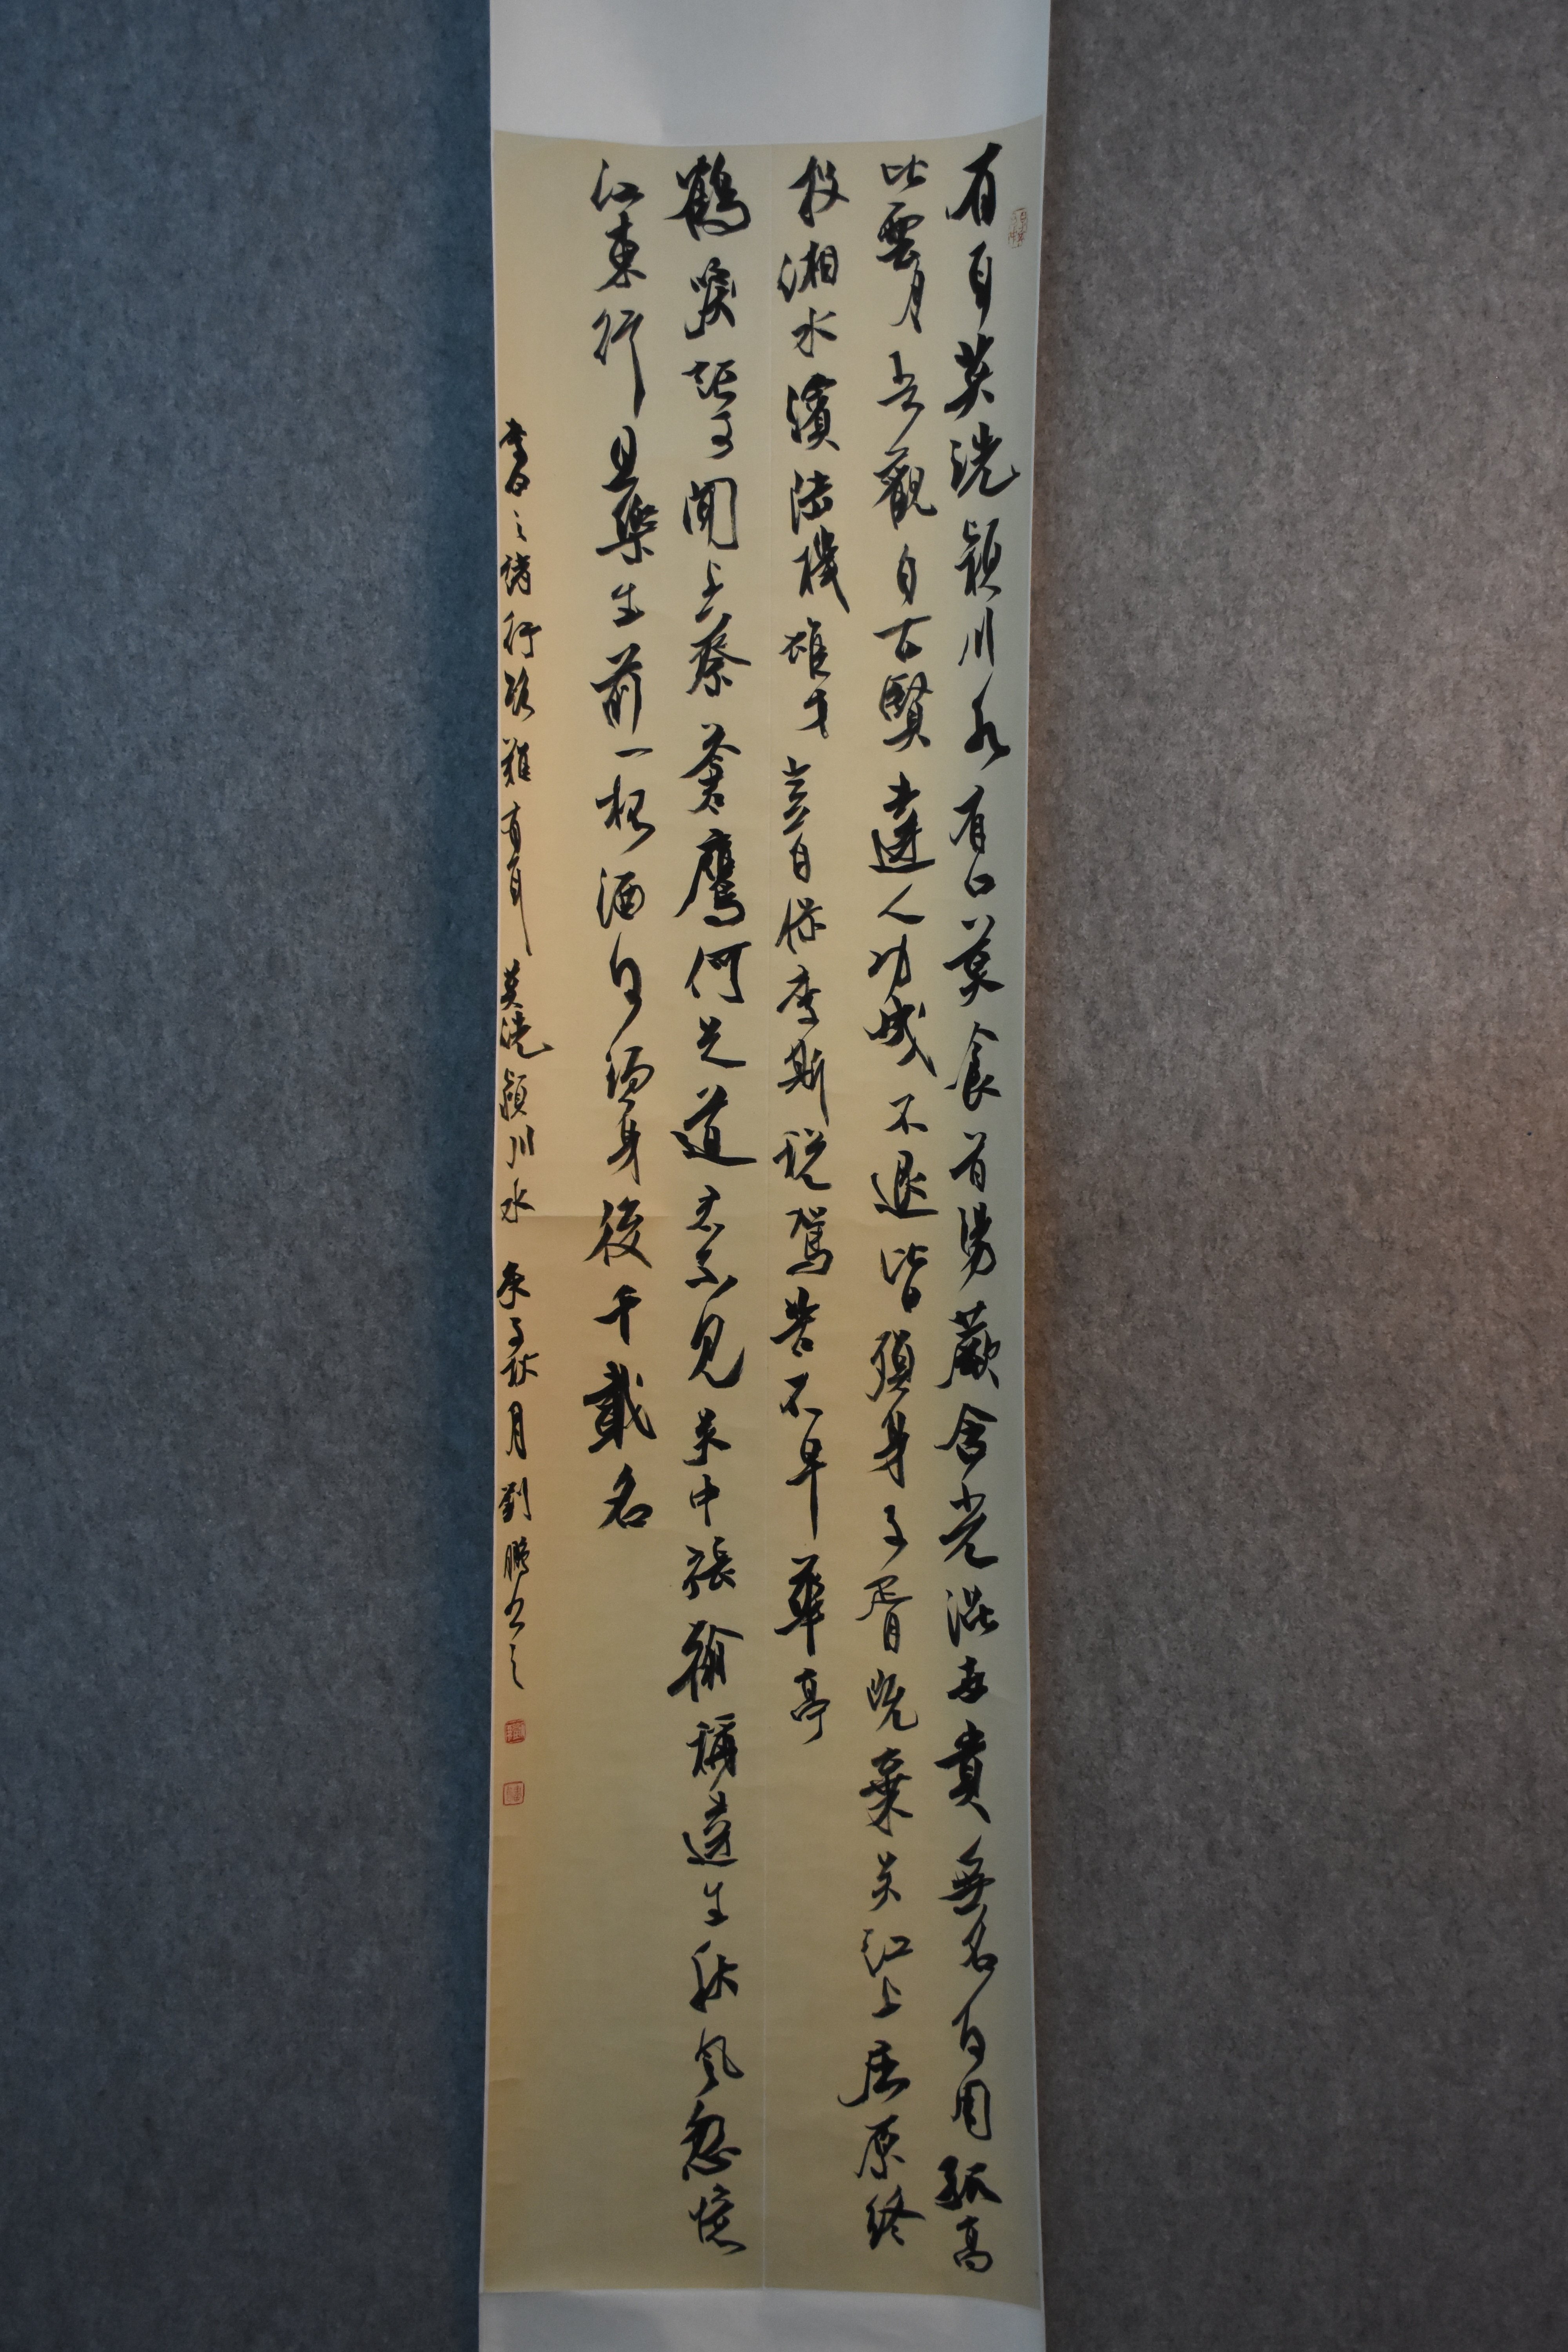 有耳莫洗潁川水有口莫食首陽蕨含光混世貴無名何用孤高
比雲月吾觀自古賢達人功成不退皆殞身子胥既棄吳江上屈原終
投湘水濱陸機雄才豈自保李斯稅駕苦不早華亭
鶴唳詎可聞上蔡蒼鷹何足道君不見吳中張翰稱達生秋風忽憶
江東行且樂生前一杯酒何須身後千載名
李白之行路難有耳莫洗潁川水 庚子秋月劉鵬書之